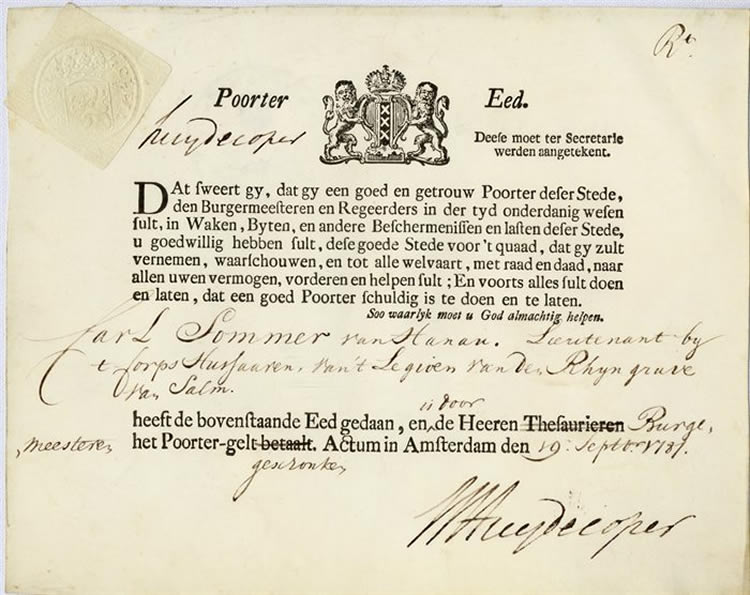 Rt.
Poorter Eed.
Huydecoper
Deese moet ter Secretarie
werden aangetekent.
DAt sweert gy, dat gy een goed en getrouw Poorter deser Stede,
den Burgermeesteren en Regeerders in der tyd onderdanig wesen
sult, in Waken, Byten, en andere Beschermenissen en lasten deser Stede,
u goedwillig hebben sult, dese goede Stede voor't quaad, dat gy zult
vernemen, waarschouwen, en tot alle welvaart, met raad en daad, naar
allen uwen vermogen, vorderen en helpen sult; En voorts alles sult doen
en laten, dat een goed Poorter schuldig is te doen en te laten.
Soo waarlyk moet u God almachtig helpen.
Carl Sommer van Hanau. Lieutenant by
t Corps Hussaaren, van't Legioen van den Rhyngrave
van Salm.
is door
heeft de bovenstaande Eed gedaan, en de Heeren Thesaurieren Burge,
meesteren het Poorter-gelt betaalt. Actum in Amsterdam den 19. Septbr. 1787.
geschonken
Huydecoper